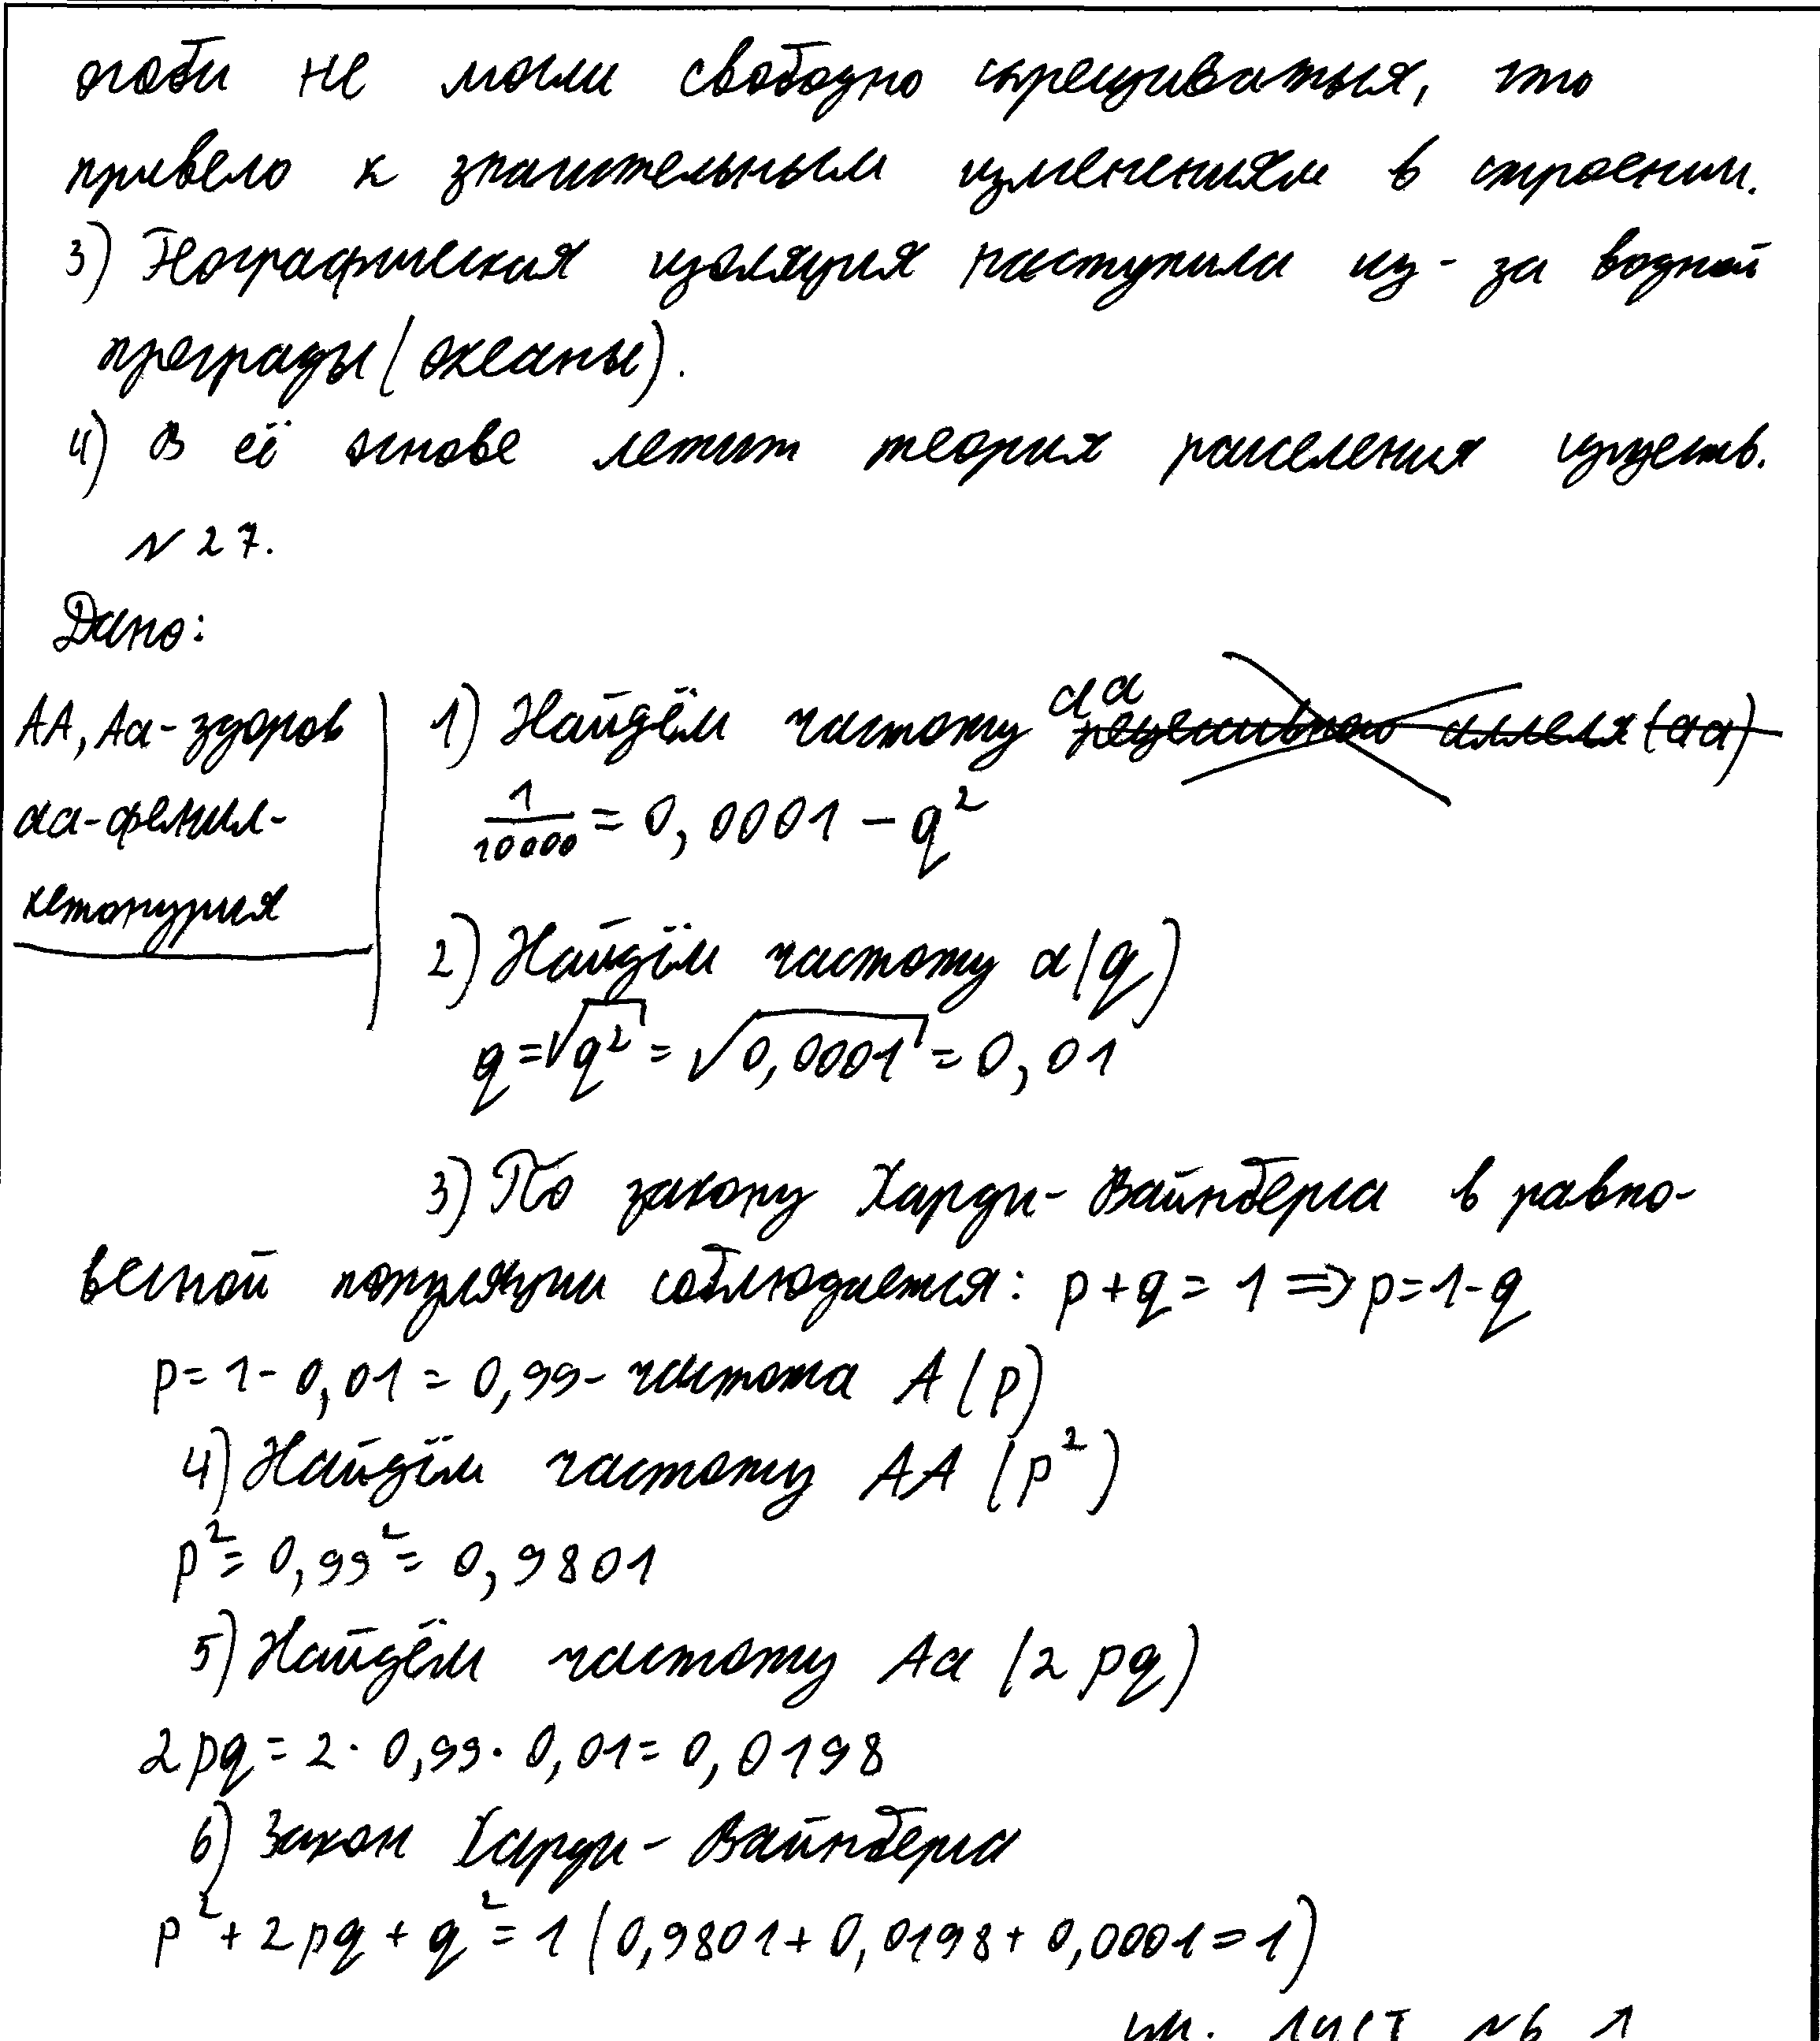 особи не могли свободно скрещиваться, что
привело к значительным изменениям в строении.
3) Географическая изоляция наступила из-за водной
преграды (океаны).
4) В её основе лежит теория расселения существ.
№ 27.
Дано:
АА, Аа - здоров
аа - фенил-
кетонурия
1) Найдём частоту аа ~~рецессивного аллеля (аа)~~
1/10000 = 0,0001 - q²
2) Найдём частоту а (q)
q = √q² = √0,0001 = 0,01
3) По закону Харди-Вайнберга в равно-
весной популяции соблюдается: p + q = 1 => p = 1 - q
p = 1 - 0,01 = 0,99 - частота А (p)
4) Найдём частоту АА (p²)
p² = 0,99² = 0,9801
5) Найдём частоту Аа (2 pq)
2 pq = 2 · 0,99 · 0,01 = 0,0198
6) Закон Харди-Вайнберга
p² + 2 pq + q² = 1 (0,9801 + 0,0198 + 0,0001 = 1)
см. лист №6 1